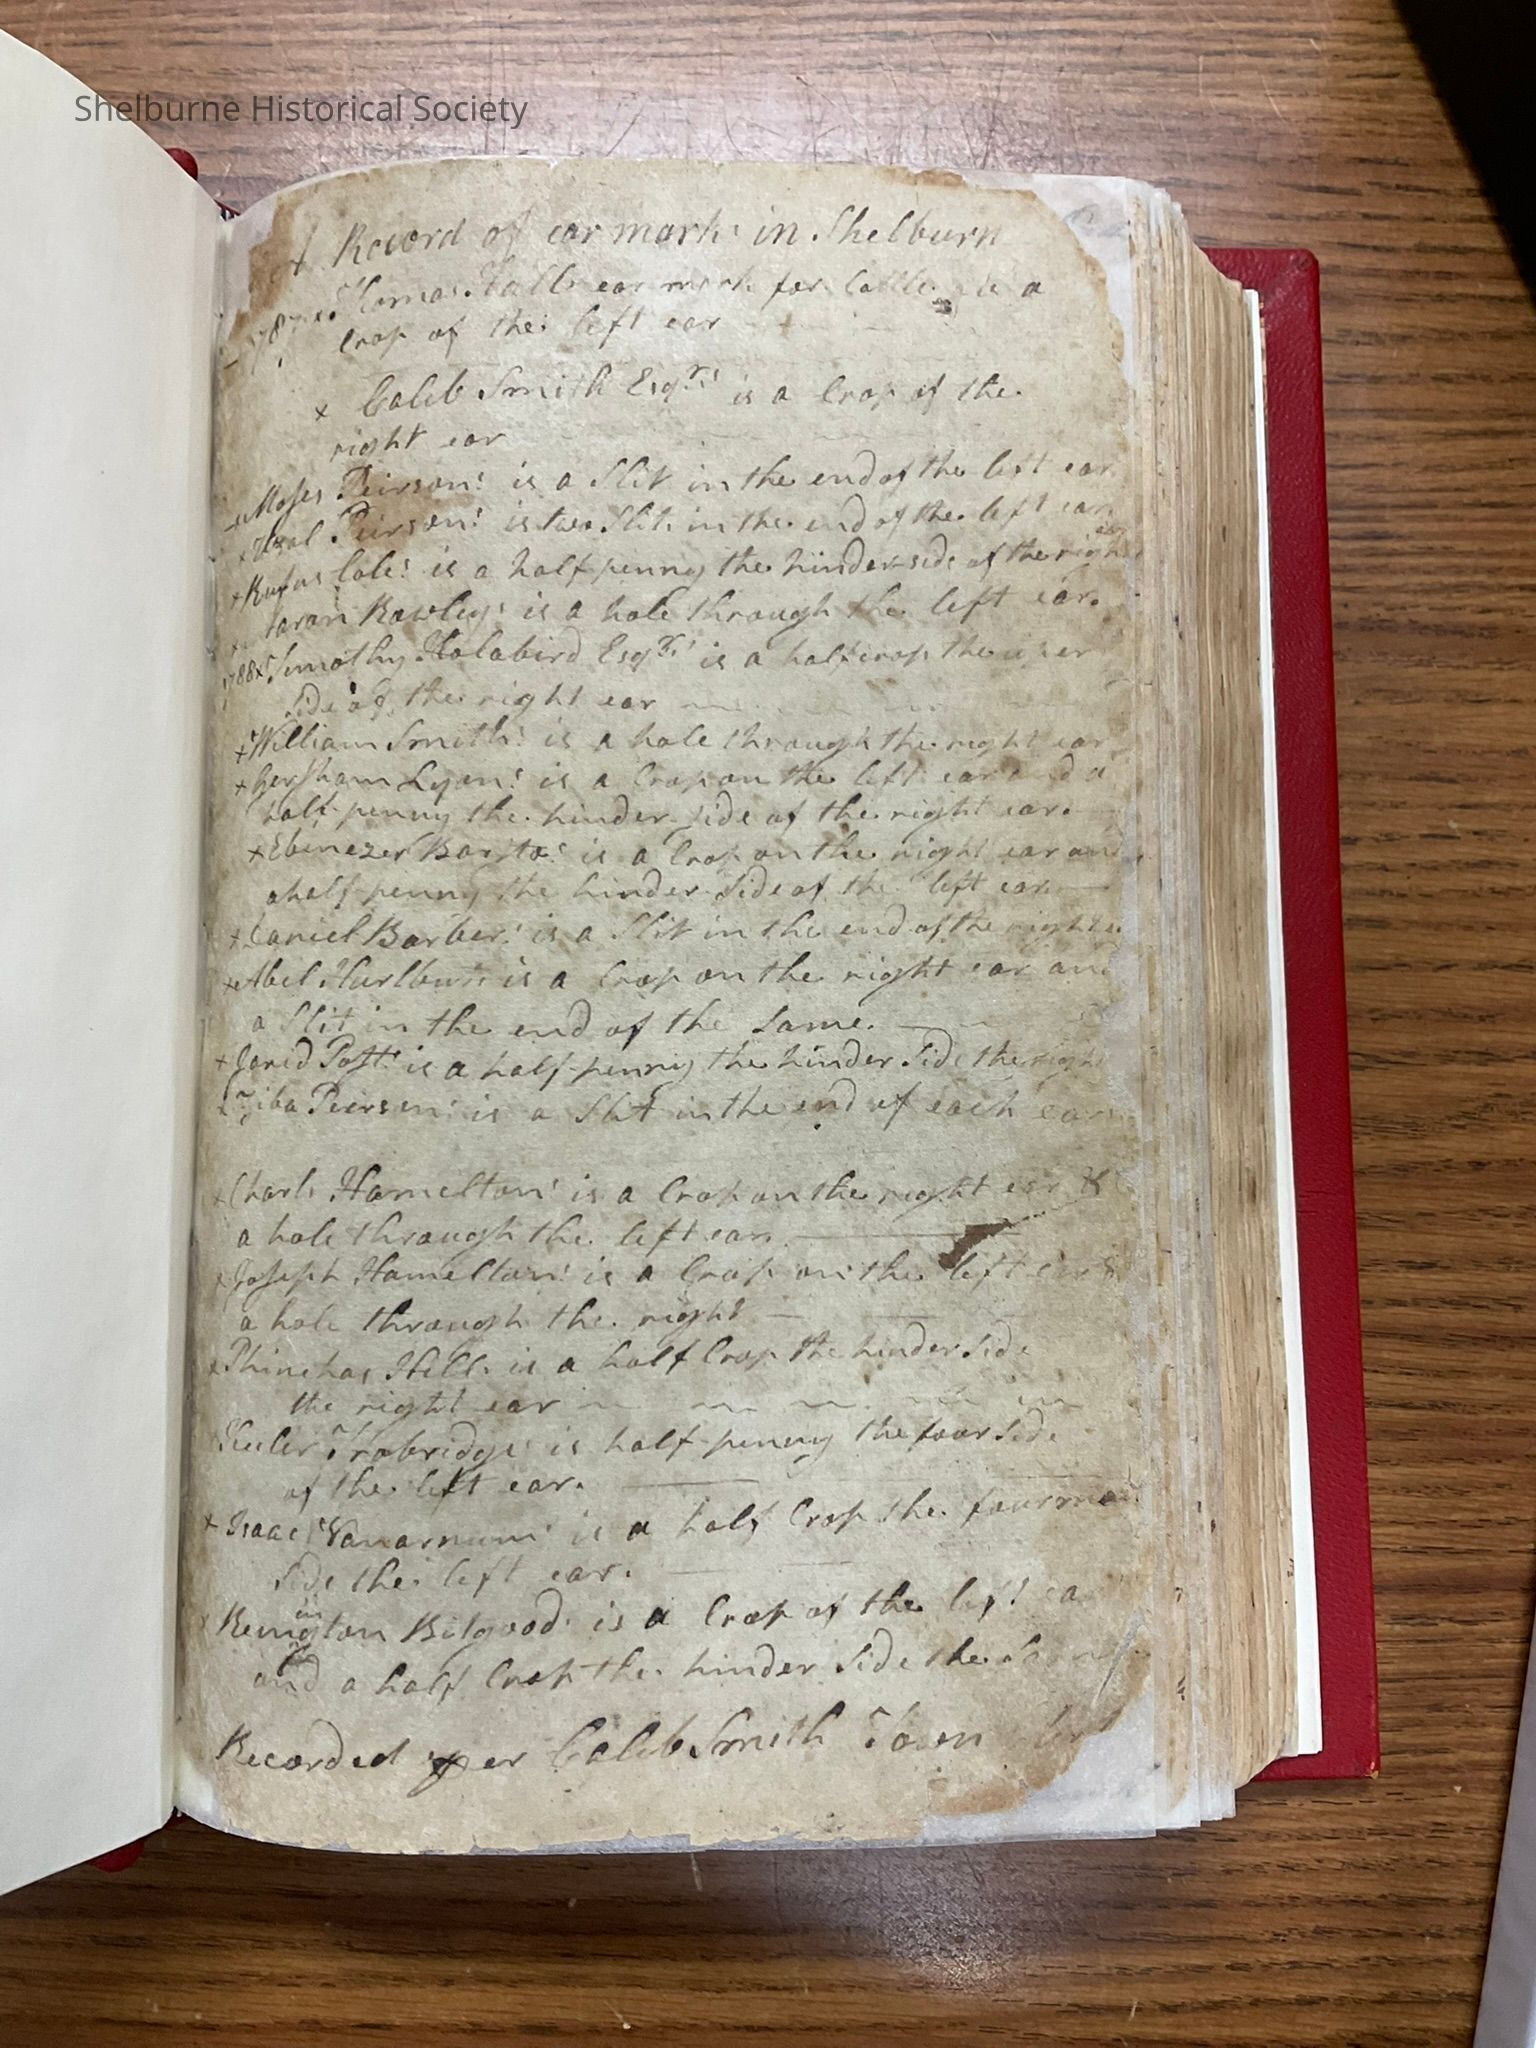 Shelburne Historical Society
A Record of ear marks in Shelburn
1787 x Thomas Hall's ear mark for Cattle is a
Crop of the left ear
x Caleb Smith Esqr's is a Crop of the
right ear
x Moses Peirson's is a Slit in the end of the left ear
x Uzal Peirson's is two Slits in the end of the left ear
x Rufus Cole's is a half-penny the hinder side of the right ear
x Rowley's is a hole through the left ear.
1788 x Timothy Holabird Esqr's is a half crop the uper
side of the right ear
x William Smith's is a hole through the right ear
x Gersham Lyon's is a Crop on the left ear and a
half-penny the hinder side of the right ear.
x Ebenezer Barsto's is a Crop on the right ear and
a half-penny the hinder Side of the left ear.
x Daniel Barber's is a Slit in the end of the right
x Abel Hurlbut's is a Crop on the right ear and
a Slit in the end of the Same.
x Jared Post's is a half-penny the hinder Side the right
x Ziba Peirson's is a Slit in the end of each ear
x Charls Hamelton's is a Crop on the right ear &
a hole through the left ear.
x Joseph Hamelton's is a Crop on the left ear &
a hole through the right
x Phinehas Hill's is a half Crop the hinder Side
the right ear
Keeler Trobridge's is half-penny the four Side
of the left ear.
x Isaac Vanarnum's is a half Crop the fourmost
Side the left ear.
x Remington Bitgood's is a Crop of the left ea
and a half Crop the hinder Side the
Recorded per Caleb Smith Town Clerk